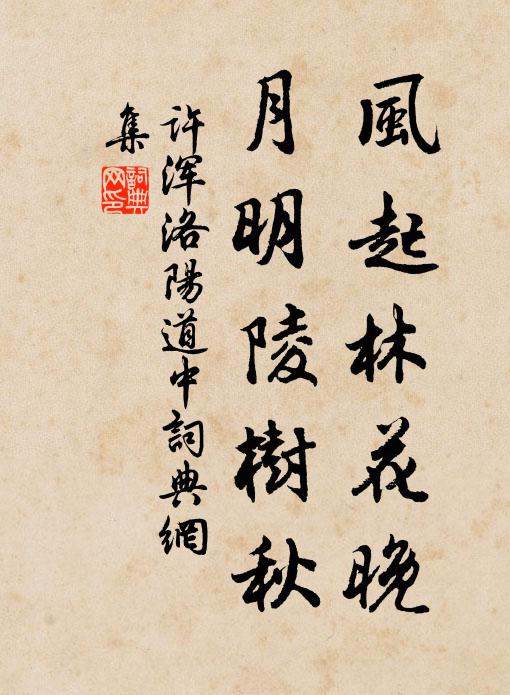 風起林花晚
月明陵樹秋
许浑洛陽道中詞典網
集
詞典
网印